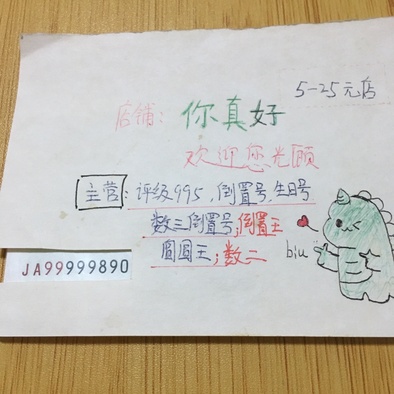 5-25元店
店铺: 你真好
欢迎您光顾
主营: 评级995, 倒置号, 生日号
数三倒置号; 倒置王
圆圆王; 数二
biu
JA99999890